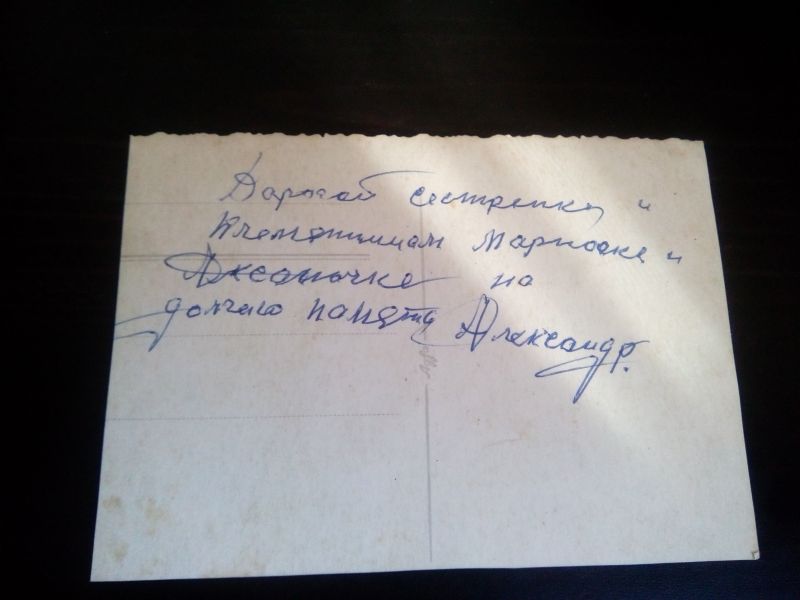 Дарогой сестренке и
племянницам Мариночке и
Оксаночке на
долгаю память Александр.